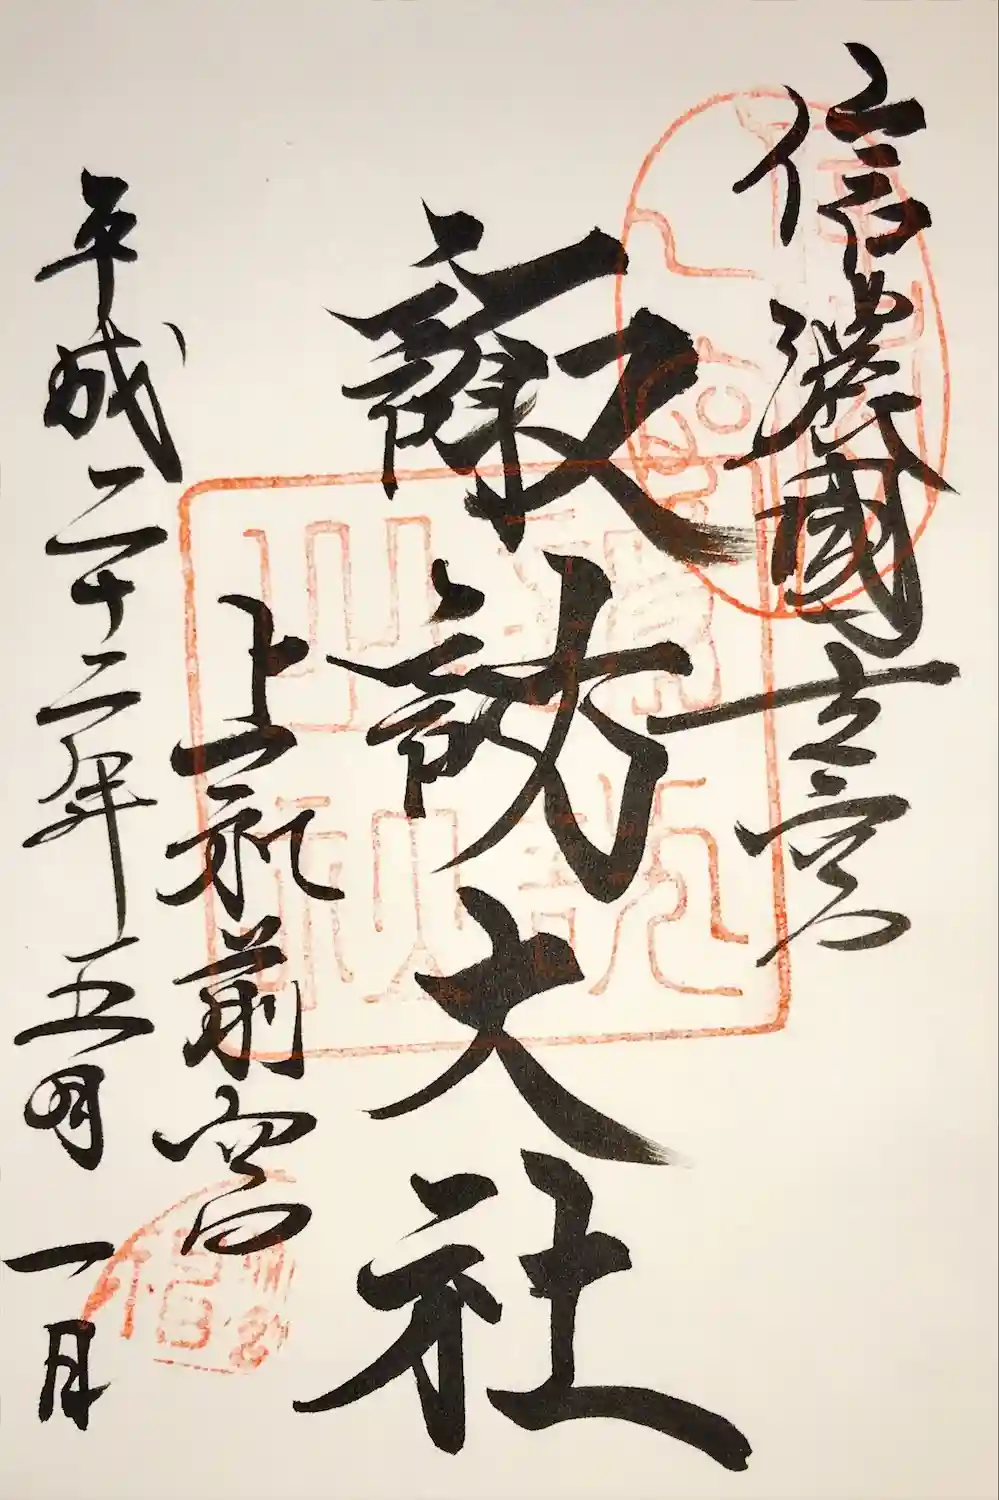 信濃國一之宮
諏訪大社
上社前宮
平成二十二年五月一日